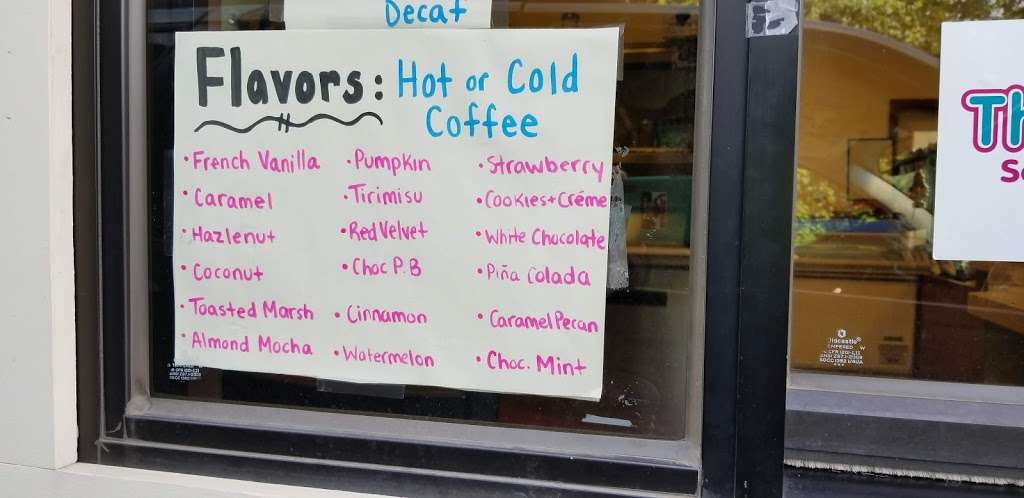 Decaf
Flavors: Hot or Cold
Coffee
• French Vanilla
• Caramel
• Hazlenut
• Coconut
• Toasted Marsh
• Almond Mocha
• Pumpkin
• Tirimisu
• Red Velvet
• Choc P.B
• Cinnamon
• Watermelon
• Strawberry
• Cookies+Créme
• White Chocolate
• Piña Colada
• Caramel Pecan
• Choc. Mint
Th
S